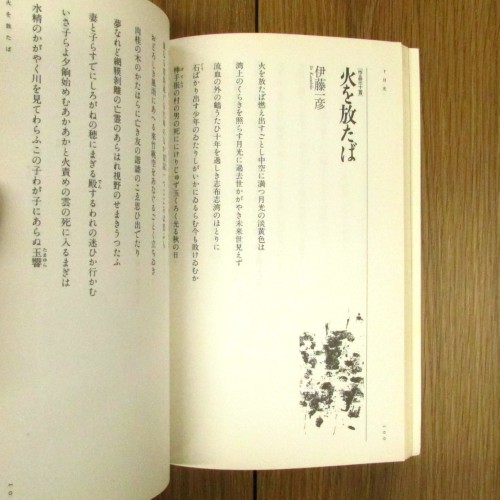 十月集
作品三十首
火を放たば
伊藤一彦
火を放たば燃え出すごとし中空に満つ月光の淡黄色は
湾上のくらきを照らす月光に過去世かがやき未来世見えず
流血の外の鶴うたひ十年を過しき志布志湾のほとりに
石ばかり出す少年のゐたりしがいかにゐるらむ今も敗けゐむか
の村の男の死ににけり
秋の日
肉桂の木のかたはらに亡き友の
こゑ思ひ出でたり
夢なれど網膜剥離の亡霊のあらはれ視野のせまきうつたふ
妻と子らすでにしろがねの穂にまぎる殿するわれの迷ひか行かむ
いざ子らよ夕餉始めむあかあかと火責めの雲の死に入るまぎは
水精のかがやく川を見てわらふこの子わが子にあらぬ玉響
たまゆら
火を放たば